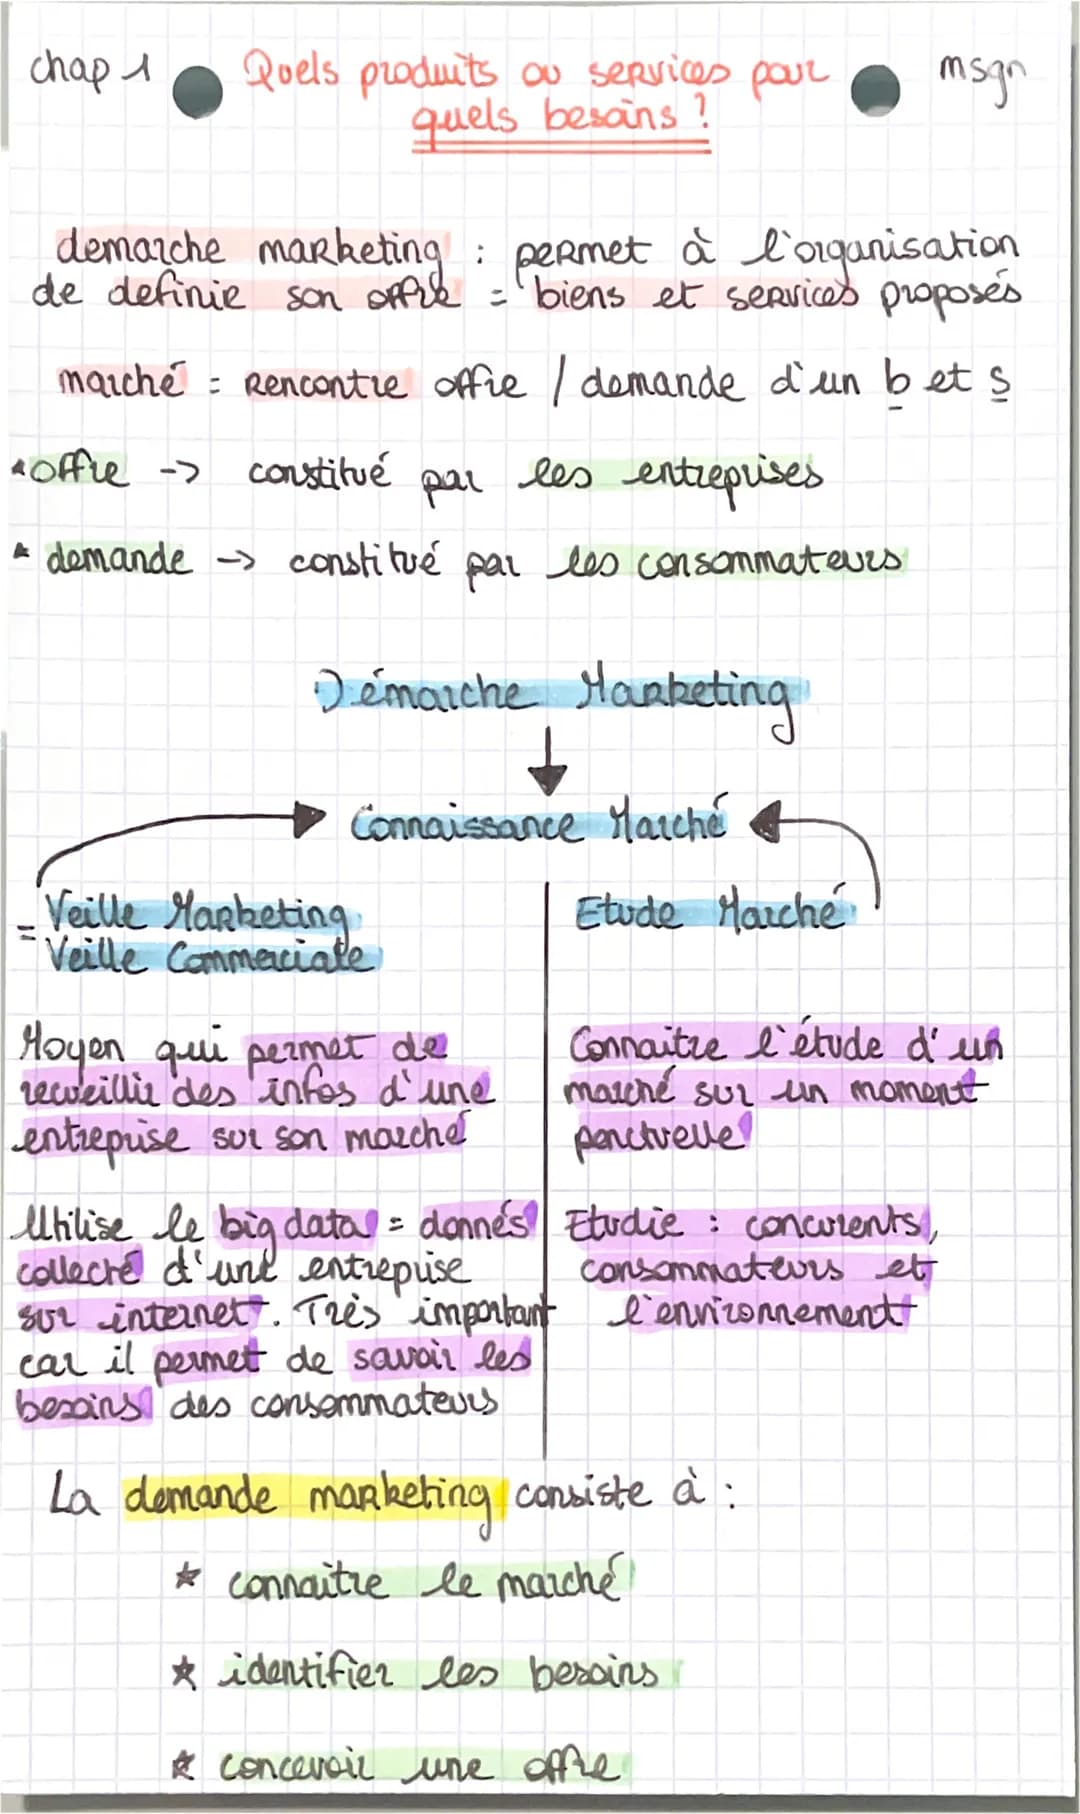 chap 1
Quels produits ou services pour
quels besoins ?
msgn
demarche marketing : permet à l'organisation
de definie son offre = biens et services proposés
marché = Rencontre offre / demande d'un b et s
offre -> constitué par les entreprises
demande -> constitué par les consommateurs
Démarche Marketing
Connaissance Marché
Veille Marketing
= Veille Commerciale
Etude Marché
Moyen qui permet de
recueillir des infos d'une
entreprise sur son marché
Utilise le big data = donnés
collecté d'une entreprise
sur internet. Très important
car il permet de savoir les
besoins des consommateurs
Connaitre l'étude d'un
marché sur un moment
ponctuelle
Etudie : concurents,
consommateurs et
l'environnement
La demande marketing consiste à :
★ connaitre le marché
★ identifier les besoins
★ concevoir une offre